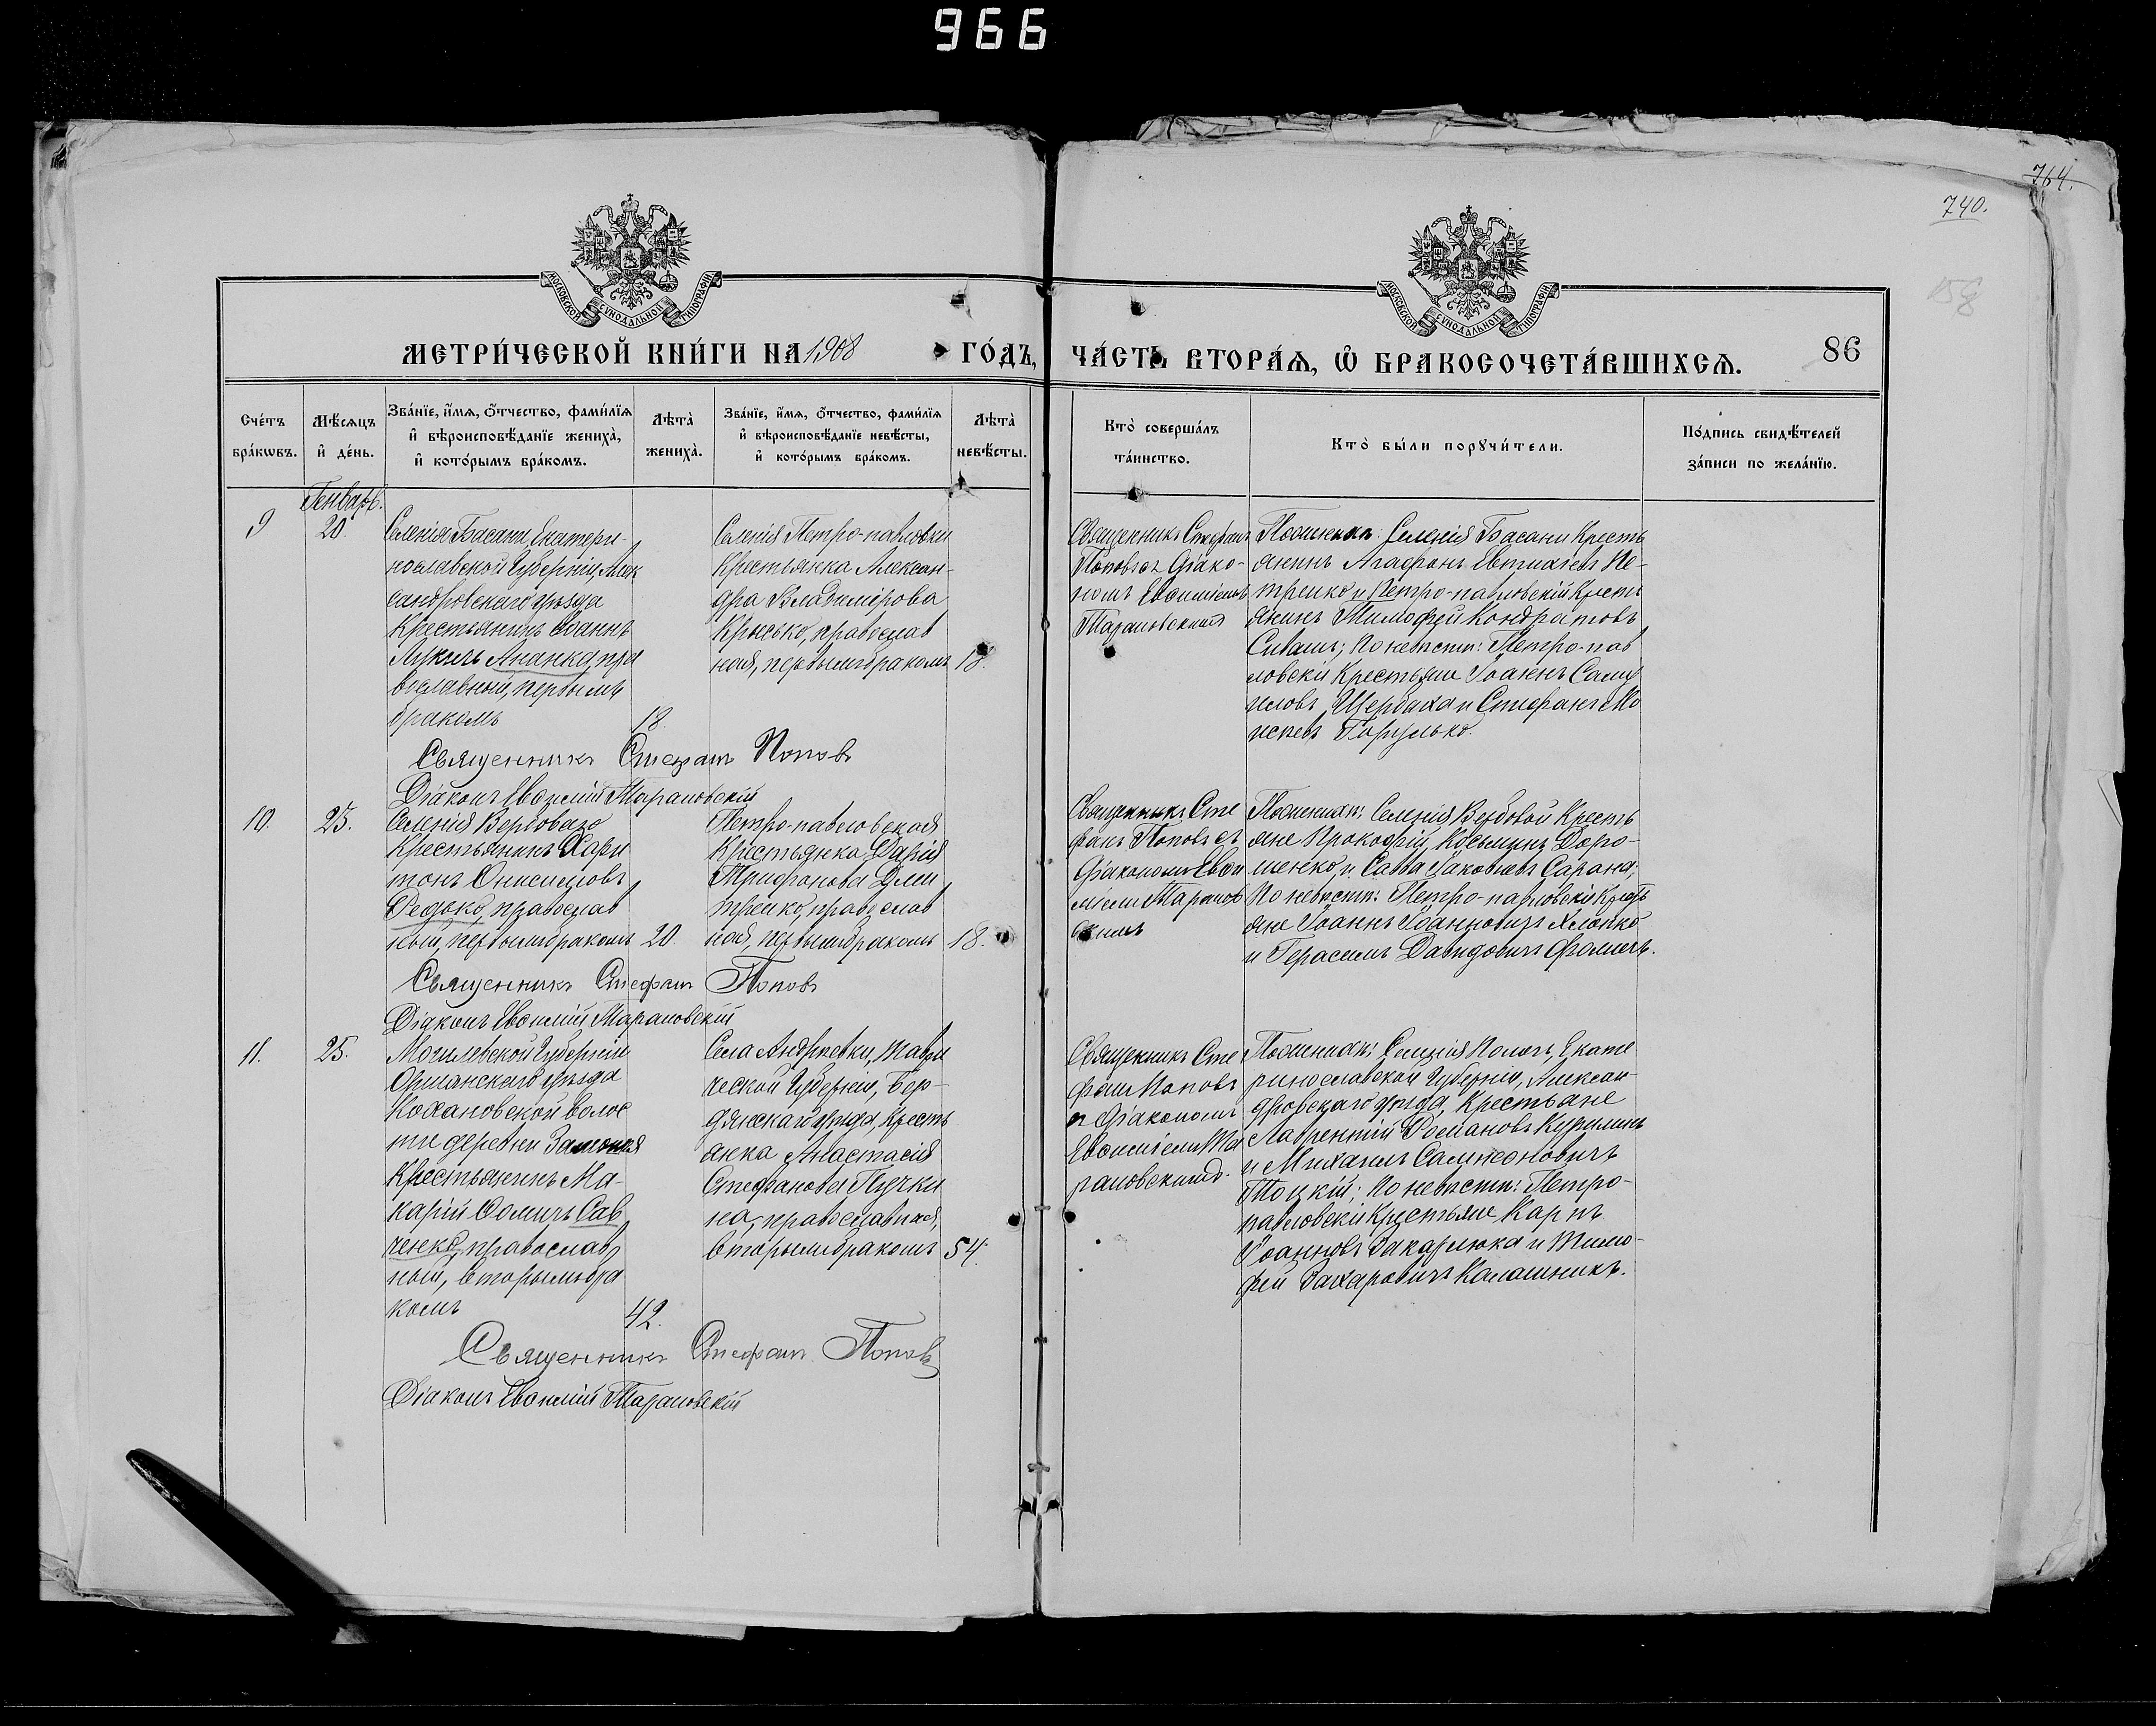 966
764.
740.
158
МОСКОВСКОЙ СѴНОДАЛЬНОЙ ТИПОГРАФІИ
МОСКОВСКОЙ СѴНОДАЛЬНОЙ ТИПОГРАФІИ
МЕТРИ́ЧЕСКОЙ КНИ́ГИ НА 1908 ГО́ДЪ,
ЧА́СТЬ ВТОРА́Ѧ, Ѽ БРАКОСОЧЕТА́ВШИХСѦ.
86
Сче́тъ бра́кѡвъ.
Мѣ́сѧцъ и҆ де́нь.
Зва́нїе, и҆́мѧ, ѻ҆́тчество, фами́лїѧ
и҆ вѣроисповѣ́данїе жениха̀,
и҆ кото́рымъ бра́комъ.
Лѣта̀ жениха̀.
Зва́нїе, и҆́мѧ, ѻ҆́тчество, фами́лїѧ
и҆ вѣроисповѣ́данїе невѣ́сты,
и҆ кото́рымъ бра́комъ.
Лѣта̀ невѣ́сты.
Кто̀ соверша́лъ та́инство.
Кто̀ бы́ли порꙋчи́тели.
По́дпись свидѣ́телей за́писи по жела́нїю.
Генварь.
9
20.
Селенія Басани, Екатери-
нославской Губерніи, Алек
сандровскаго уѣзда
Крестьянинъ Іоаннъ
Лукичъ Ананка, пра
вославный, первымъ
бракомъ
18.
Селенія Петро-павловки
Крестьянка Алексан-
дра Владимірова
Крысько, православ
ная, первымъ бракомъ
18.
Священникъ Стефанъ
Поповъ съ Діако-
номъ Евфиміемъ
Тарановскимъ
По женихѣ: Селенія Басани Кресть
янинъ Агафонъ Евтихіевъ Пе-
тренко и Петро-павловскій Кресть
янинъ Тимофей Кондратовъ
Сивашъ; По невѣстѣ: Петро-пав
ловскіе Крестьяне Іоаннъ Саму
иловъ Щербаха и Стефанъ Мо
исеевъ
Священникъ Стефанъ Поповъ
Діаконъ Евфимій Тарановскій
10.
25.
Селенія Вербоваго
Крестьянинъ Хари
тонъ Онисимовъ
Редько, православ
ный, первымъ бракомъ
20.
Петро-павловская
Крестьянка Дарія
Трифонова Дми
тренко, православ
ная, первымъ бракомъ
18.
Священникъ Сте
фанъ Поповъ съ
Діакономъ Евфи
міемъ Таранов
скимъ
По женихѣ: Селенія Вербовой Кресть
яне Прокофій Косьминъ Доро-
шенко и Савва Іаковлевъ Сарана;
По невѣстѣ: Петро-павловскіе Кресть
яне Іоаннъ Іоанновичъ Хлопко
и Герасимъ Давидовичъ Фоменъ.
Священникъ Стефанъ Поповъ
Діаконъ Евфимій Тарановскій
11.
25.
Могилевской Губерніи
Оршанскаго уѣзда
Кохановской волос
ти деревни
Крестьянинъ Ма-
карій Фомичъ Сав
ченко, православ
ный, вторымъ бра
комъ
42.
Села Андреевки, Таври
ческой Губерніи, Бер-
дянскаго уѣзда, Кресть
янка Анастасія
Стефанова Пучки
на, православная,
вторымъ бракомъ
54.
Священникъ Сте
фанъ Поповъ
съ Діакономъ
Евфиміемъ Та
рановскимъ.
По женихѣ: Селенія Пологъ, Екате
ринославской Губерніи, Алексан-
дровскаго уѣзда, Крестьяне
Лаврентій Романовъ Курилинъ
и Михаилъ Самсоновичъ
Тоцкій; По невѣстѣ: Петро-
павловскіе Крестьяне Карпъ
Іоанновъ Захарлюка и Тимо-
фей Захаровичъ Калашникъ.
Священникъ Стефанъ Поповъ
Діаконъ Евфимій Тарановскій